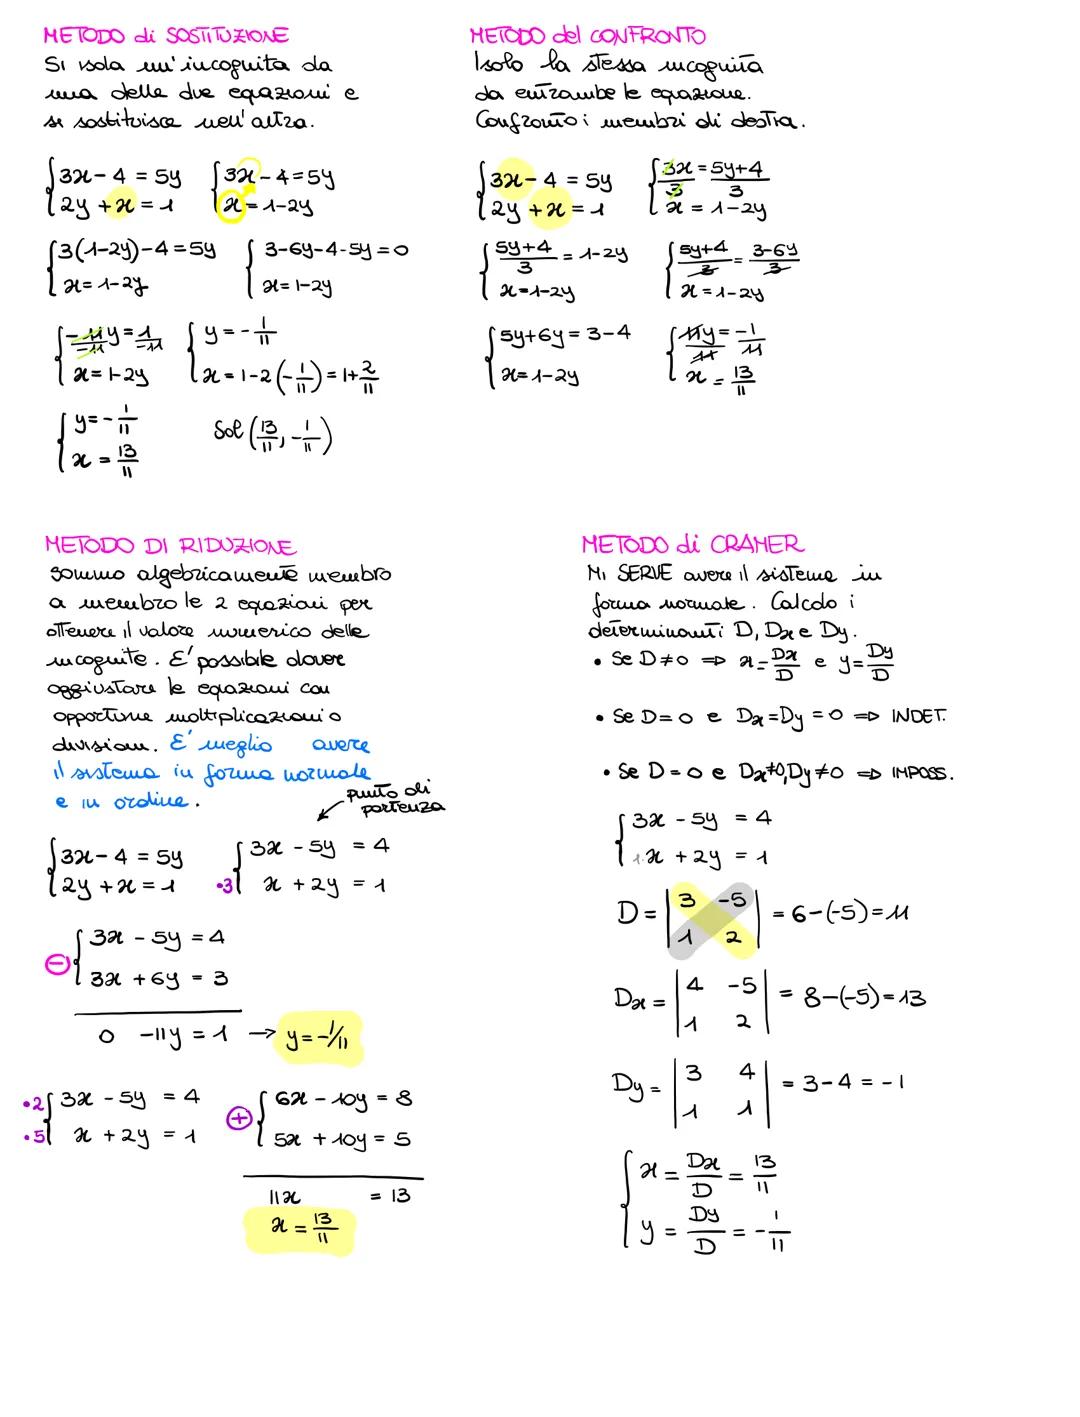 METODO di SOSTITUZIONE
Si isola un'incognita da
una delle due equazioni e
si sostituisce nell'altra.
{3x - 4 = 5y {3x - 4 = 5y
{2y + x = 1 {x = 1-2y
{3(1-2y)-4 = 5y {3-6y-4-5y = 0
{x = 1-2y {x = 1-2y
{-11/-11 y = 1/-11 {y = -1/11
{x = 1-2y {x = 1-2(-1/11) = 1+2/11
{y = -1/11
{x = 13/11
Sol (13/11, -1/11)
METODO del CONFRONTO
Isolo la stessa incognita
da entrambe le equazione.
Confronto i membri di destra.
{3x - 4 = 5y {3x/3 = 5y+4/3
{2y + x = 1 {x = 1-2y
{5y+4/3 = 1-2y {5y+4/3 = 3-6y/3
{x = 1-2y {x = 1-2y
{5y+6y = 3-4 {11y/11 = -1/11
{x = 1-2y {x = 13/11
METODO DI RIDUZIONE
Sommo algebricamente membro
a membro le 2 equazioni per
ottenere il valore numerico delle
incognite. E' possibile dover
aggiustare le equazioni con
opportune moltiplicazioni o
divisioni. E' meglio avere
il sistema in forma normale
e in ordine.
punto di
partenza
{3x - 4 = 5y {3x - 5y = 4
{2y + x = 1 •3{x + 2y = 1
{3x - 5y = 4
⊖{3x + 6y = 3
0 -11y = 1 → y = -1/11
•2{3x - 5y = 4 ⊕{6x - 10y = 8
•5{x + 2y = 1 {5x + 10y = 5
11x = 13
x = 13/11
METODO di CRAMER
Mi SERVE avere il sistema in
forma normale. Calcolo i
determinanti D, Dx e Dy.
• Se D≠0 ⇒ x = Dx/D e y = Dy/D
• Se D=0 e Dx=Dy=0 ⇒ INDET.
• Se D=0 e Dx≠0, Dy≠0 ⇒ IMPOSS.
{3x - 5y = 4
{1·x + 2y = 1
D = |3 -5| = 6-(-5) = 11
|1 2|
Dx = |4 -5| = 8-(-5) = 13
|1 2|
Dy = |3 4| = 3-4 = -1
|1 1|
{x = Dx/D = 13/11
{y = Dy/D = -1/11